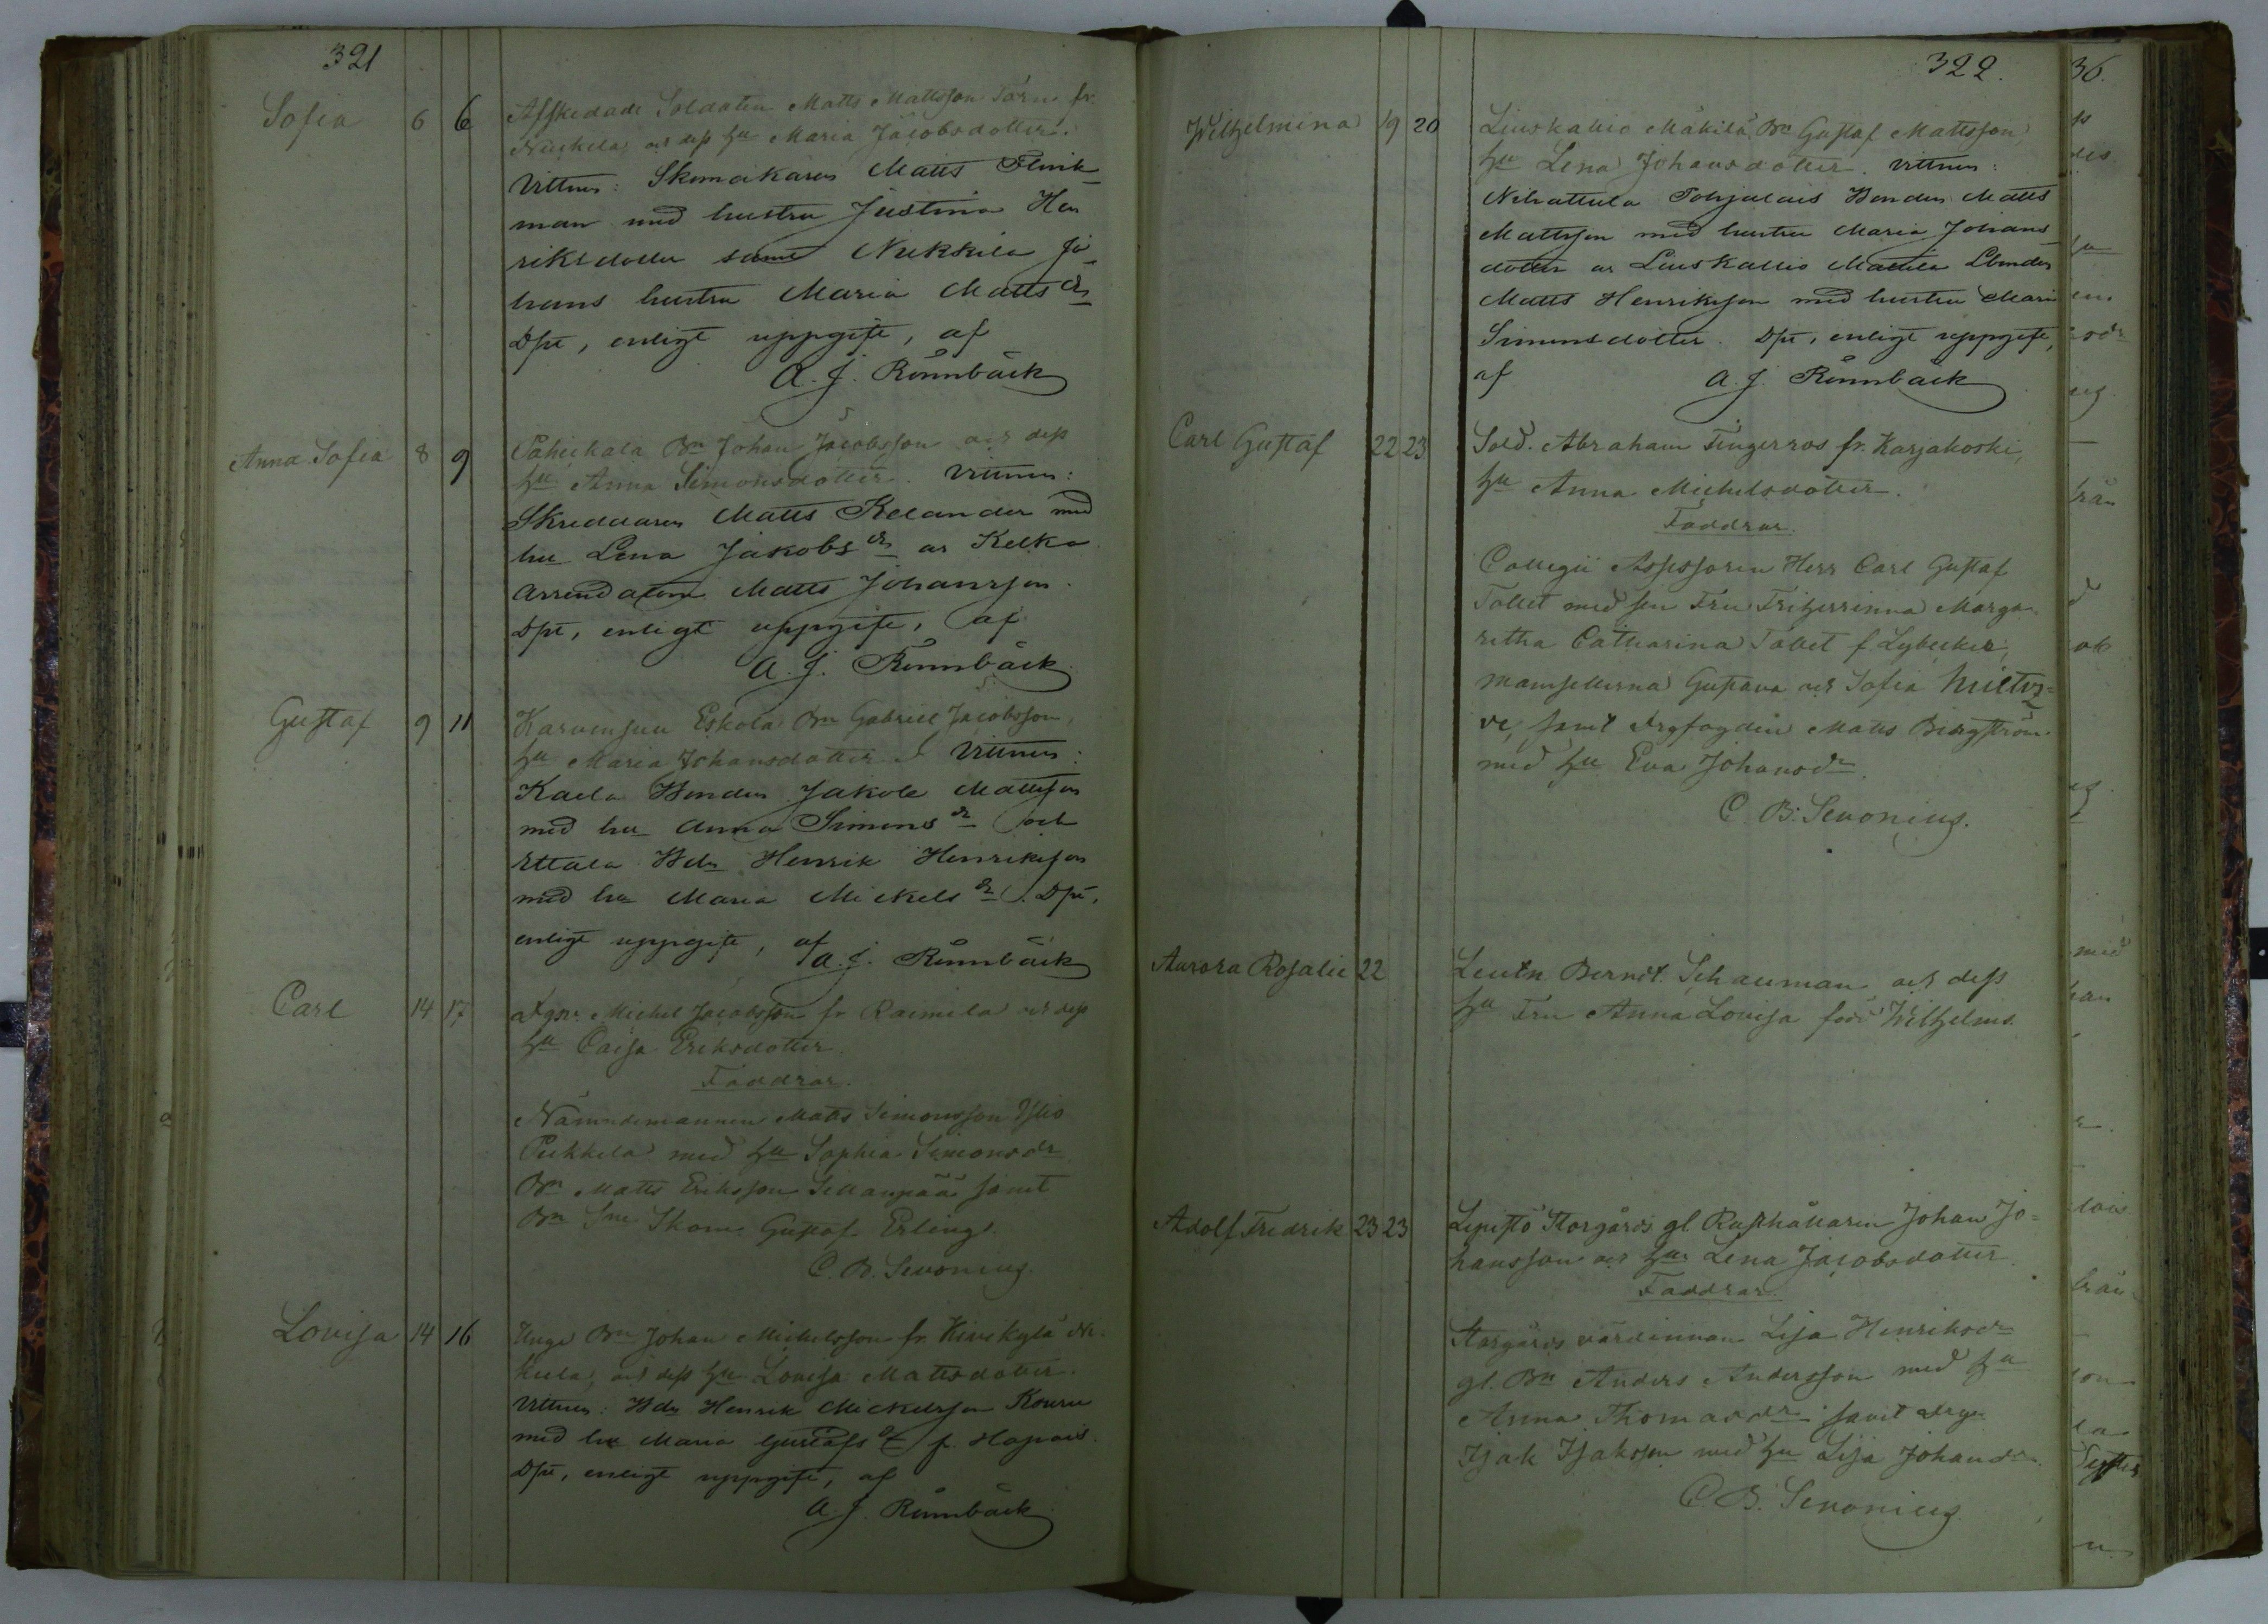 321
Sofia 6 6 Afskedade Soldaten Matts Mattsson Törn fr.
Niukkila, och dess Hu Maria Jacobsdotter.
Vittnen: Skomakaren Matts Flink-
man med hustru Justina Hen
riksdotter samt Niukkila Jo-
hans hustru Maria Matts dr
Dpt, enligt uppgift, af
A. J. Rönnbäck
Anna Sofia 8 9 Bn Johan Jacobsson och dess
Hu Anna Simonsdotter. Vittnen:
Skreddaren Matts Kelander med
hu Lena Jakobs dr och Kelka
arrendatorn Matts Johansson.
Dpt, enligt uppgift, af
A. J. Rönnbäck
Gustaf 9 11 Karvonsuu Eskola Bn Gabriel Jacobsson,
Hu Maria Johansdotter Vittnen:
Kaela Bonden Jakob Mattsson
med hu Anna Simons dr och
Ettala Bdn Henrik Henriksson
med hu Maria Mickels dr. Dpt,
enligt uppgift, af
A. J. Rönnbäck
Carl 14 17 Michel Jacobsson fr Raimela och dess
Hu Caisa Eriksdotter.
Faddrar.
Nämndemannen Matts Simonsson Ylis
Peckkila med Hu Sophia Simonsdr
Bn Matts Eriksson Sillanpää samt
Bn Sne Thom. Gustaf Erling.
C. B. Sevonius.
Lovisa 14 16 Unge Bn Johan Michelsson fr. Kivikylä
och dess Hu Lovisa Mattsdotter.
Vittnen: Bdn Henrik Mickelsson Kouru
med hu Maria Gustafs dr f. Hapais.
Dpt, enligt uppgift, af
A. J. Rönnbäck
322.
Wilhelmina 19 20 Liuskallio Mäkilä Bn Gustaf Mattsson,
Hu Lena Johansdotter. Vittnen:
Nihattula Pohjalais Bonden Matts
Mattsson med hustru Maria Johans-
dotter och Liuskallio Mattila Bonden
Matts Henriksson med hustru Maria
Simonsdotter. Dpt, enligt uppgift,
af A. J. Rönnbäck
Carl Gustaf 22 23 Sold. Abraham Fingerroos fr. Karjakoski,
Hu Anna Michelsdotter.
Faddrar.
Collegii Assessoren Herr Carl Gustaf
Tollet med sin Fru Friherrinna Marga-
retha Catharina Tollet f. Lybecker,
mamsellerna Gustava och Sofia
samt Drgfogden Matts Bergström
med Hu Eva Johansdr.
C. B. Sevonius.
Aurora Rosalie 22 Leutn Berndt Schauman och dess
Hu Fru Anna Lovisa född Wilhelms.
Adolf Fredrik 23 23 Lepistö Storgårds gl Rusthållaren Johan Jo-
hansson och Hu Lena Jacobsdotter.
Faddrar.
Storgårds värdinnan Lisa Henriksdr
gl. Bn Anders Andersson med Hu
Anna Thomasdr samt Drgn
Isak Isaksson med Hu Lisa Johansdr.
C. B. Sevonius.
36.